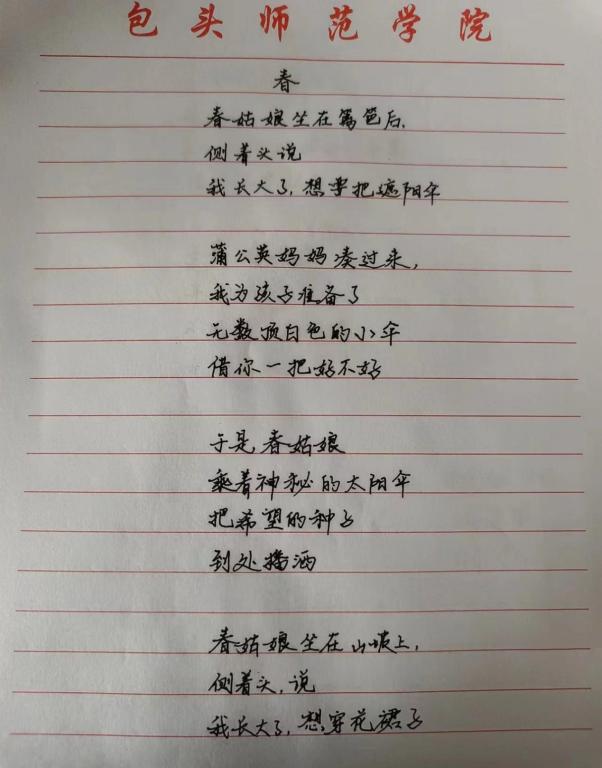 包头师范学院
春
春姑娘坐在篱笆后,
侧着头说
我长大了,想要把遮阳伞
蒲公英妈妈凑过来,
我为孩子准备了
无数顶白色的小伞
借你一把好不好
于是春姑娘
乘着神秘的太阳伞
把希望的种子
到处播洒
春姑娘坐在山坡上,
侧着头,说
我长大了,想穿花裙子